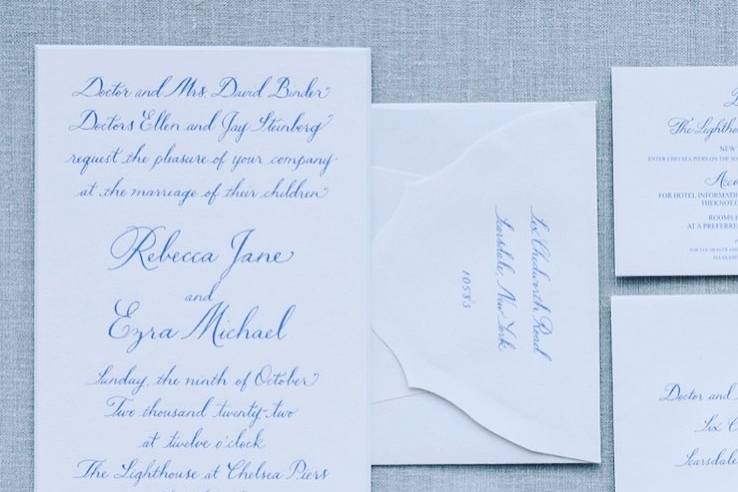 Doctor and Mrs. David Binder
Doctors Ellen and Jay Steinberg
request the pleasure of your company
at the marriage of their children
Rebecca Jane
and
Ezra Michael
Sunday, the ninth of October
Two thousand twenty-two
at twelve o'clock
The Lighthouse at Chelsea Piers
Six Chedworth Road
Scarsdale, New York
10583
The Lighthouse
NEW
ENTER CHELSEA PIERS ON THE
Acco
FOR HOTEL INFORMATI
THEKNOT.C
ROOMS
AT A PREFERRE
Doctor and
Six C
Scarsdale